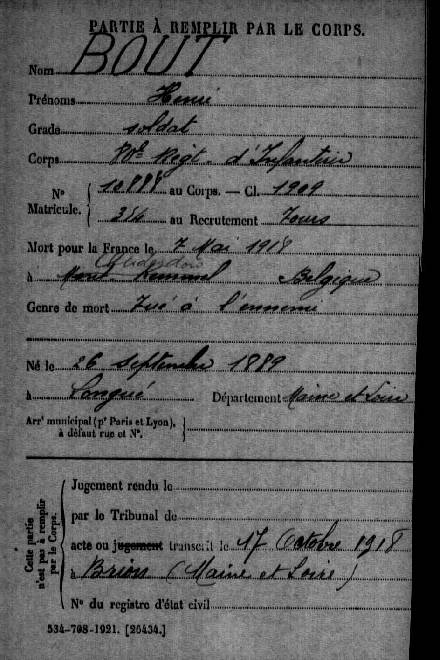 PARTIE À REMPLIR PAR LE CORPS.
Nom BOUT
Prénoms Henri
Grade soldat
Corps Régt. d'Infanterie
N° Matricule. 10888 au Corps. — Cl. 1909
354 au Recrutement Tours
Mort pour la France le 7 Mai 1918
à Mont Kemmel Belgique
Genre de mort Tué à l'ennemi
Né le 26 septembre 1889
à Longué Département Maine et Loire
Arr¹ municipal (pʳ Paris et Lyon),
à défaut rue et N°.
Cette partie
n'est pas à remplir
par le Corps.
Jugement rendu le
par le Tribunal de
acte ou jugement transcrit le 17 Octobre 1918
à Brion (Maine et Loire)
N° du registre d'état civil
534-708-1921. [26434.]